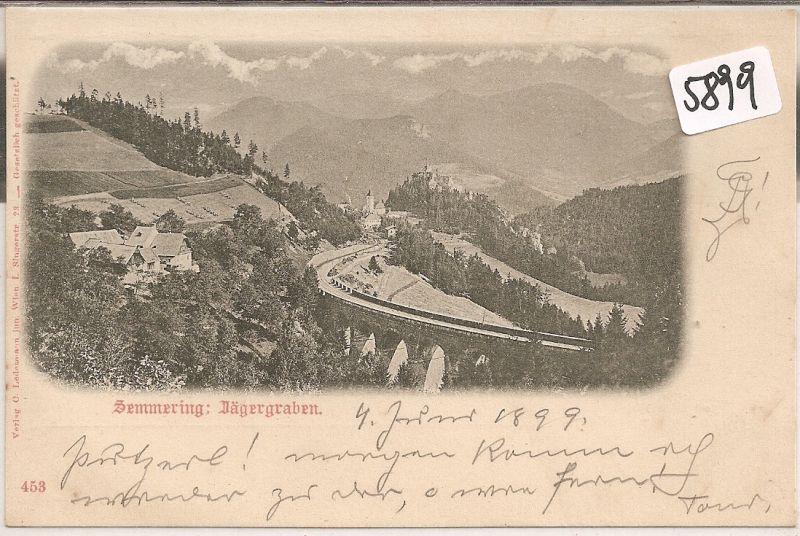 5899
Verlag C. Ledermann jun. Wien I. Singerstr. 23 — Gesetzlich geschützt.
Semmering: Jägergraben.
4. Juni 1899.
Putzerl! morgen Komm ich
wieder zu dir, o wie fern!
453